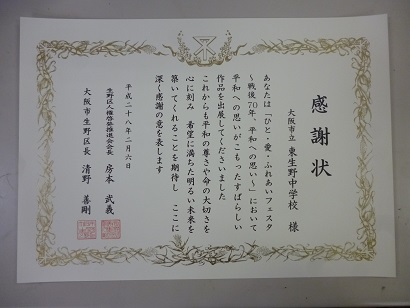 感謝状
大阪市立 東生野中学校 様
あなたは「ひと・愛・ふれあいフェスタ
～戦後70年、平和への思い～」において
平和への思いがこもったすばらしい
作品を出展してくださいました
これからも平和の尊さや命の大切さを
心に刻み 希望に満ちた明るい未来を
築いてくれることを期待し ここに
深く感謝の意を表します
平成二十八年二月六日
生野区人権啓発推進会会長 房本 武義
大阪市生野区長 清野 善剛